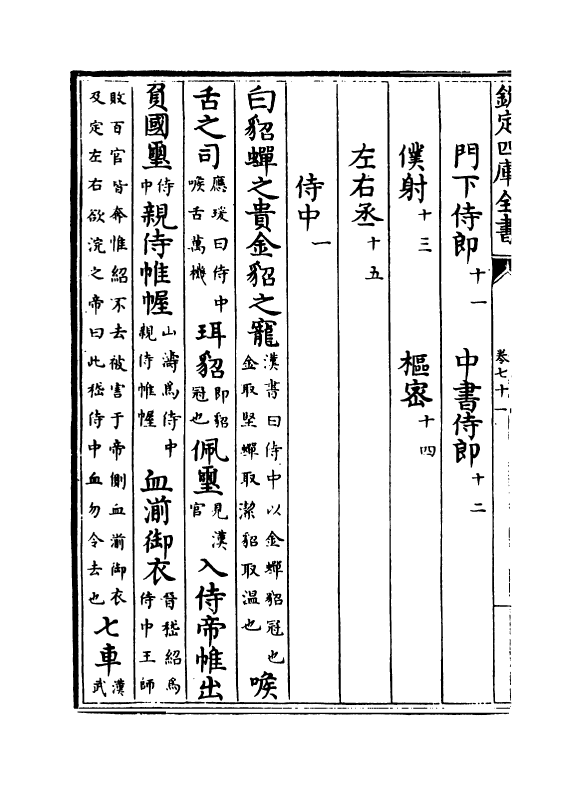 欽定四庫全書
卷七十一
門下侍郎十一　中書侍郎十二
僕射十三　樞密十四
左右丞十五
侍中一
白貂蟬之貴金貂之寵漢書曰侍中以金蟬貂冠也金取堅蟬取潔貂取温也喉
舌之司應瑗曰侍中喉舌萬機珥貂即貂冠也佩璽見漢官入侍帝帷出
負國璽侍中親侍帷幄山濤為侍中親侍帷幄血湔御衣晉嵇紹為侍中王師
敗百官皆奔惟紹不去被害于帝側血湔御衣及定左右欲浣之帝曰此嵇侍中血勿令去也七車漢武